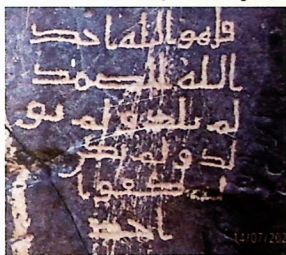 قل هو الله احد
الله الصمد
لم يلد و لم يو
لد و لم يكن
له كفوا
احد
14/07/202